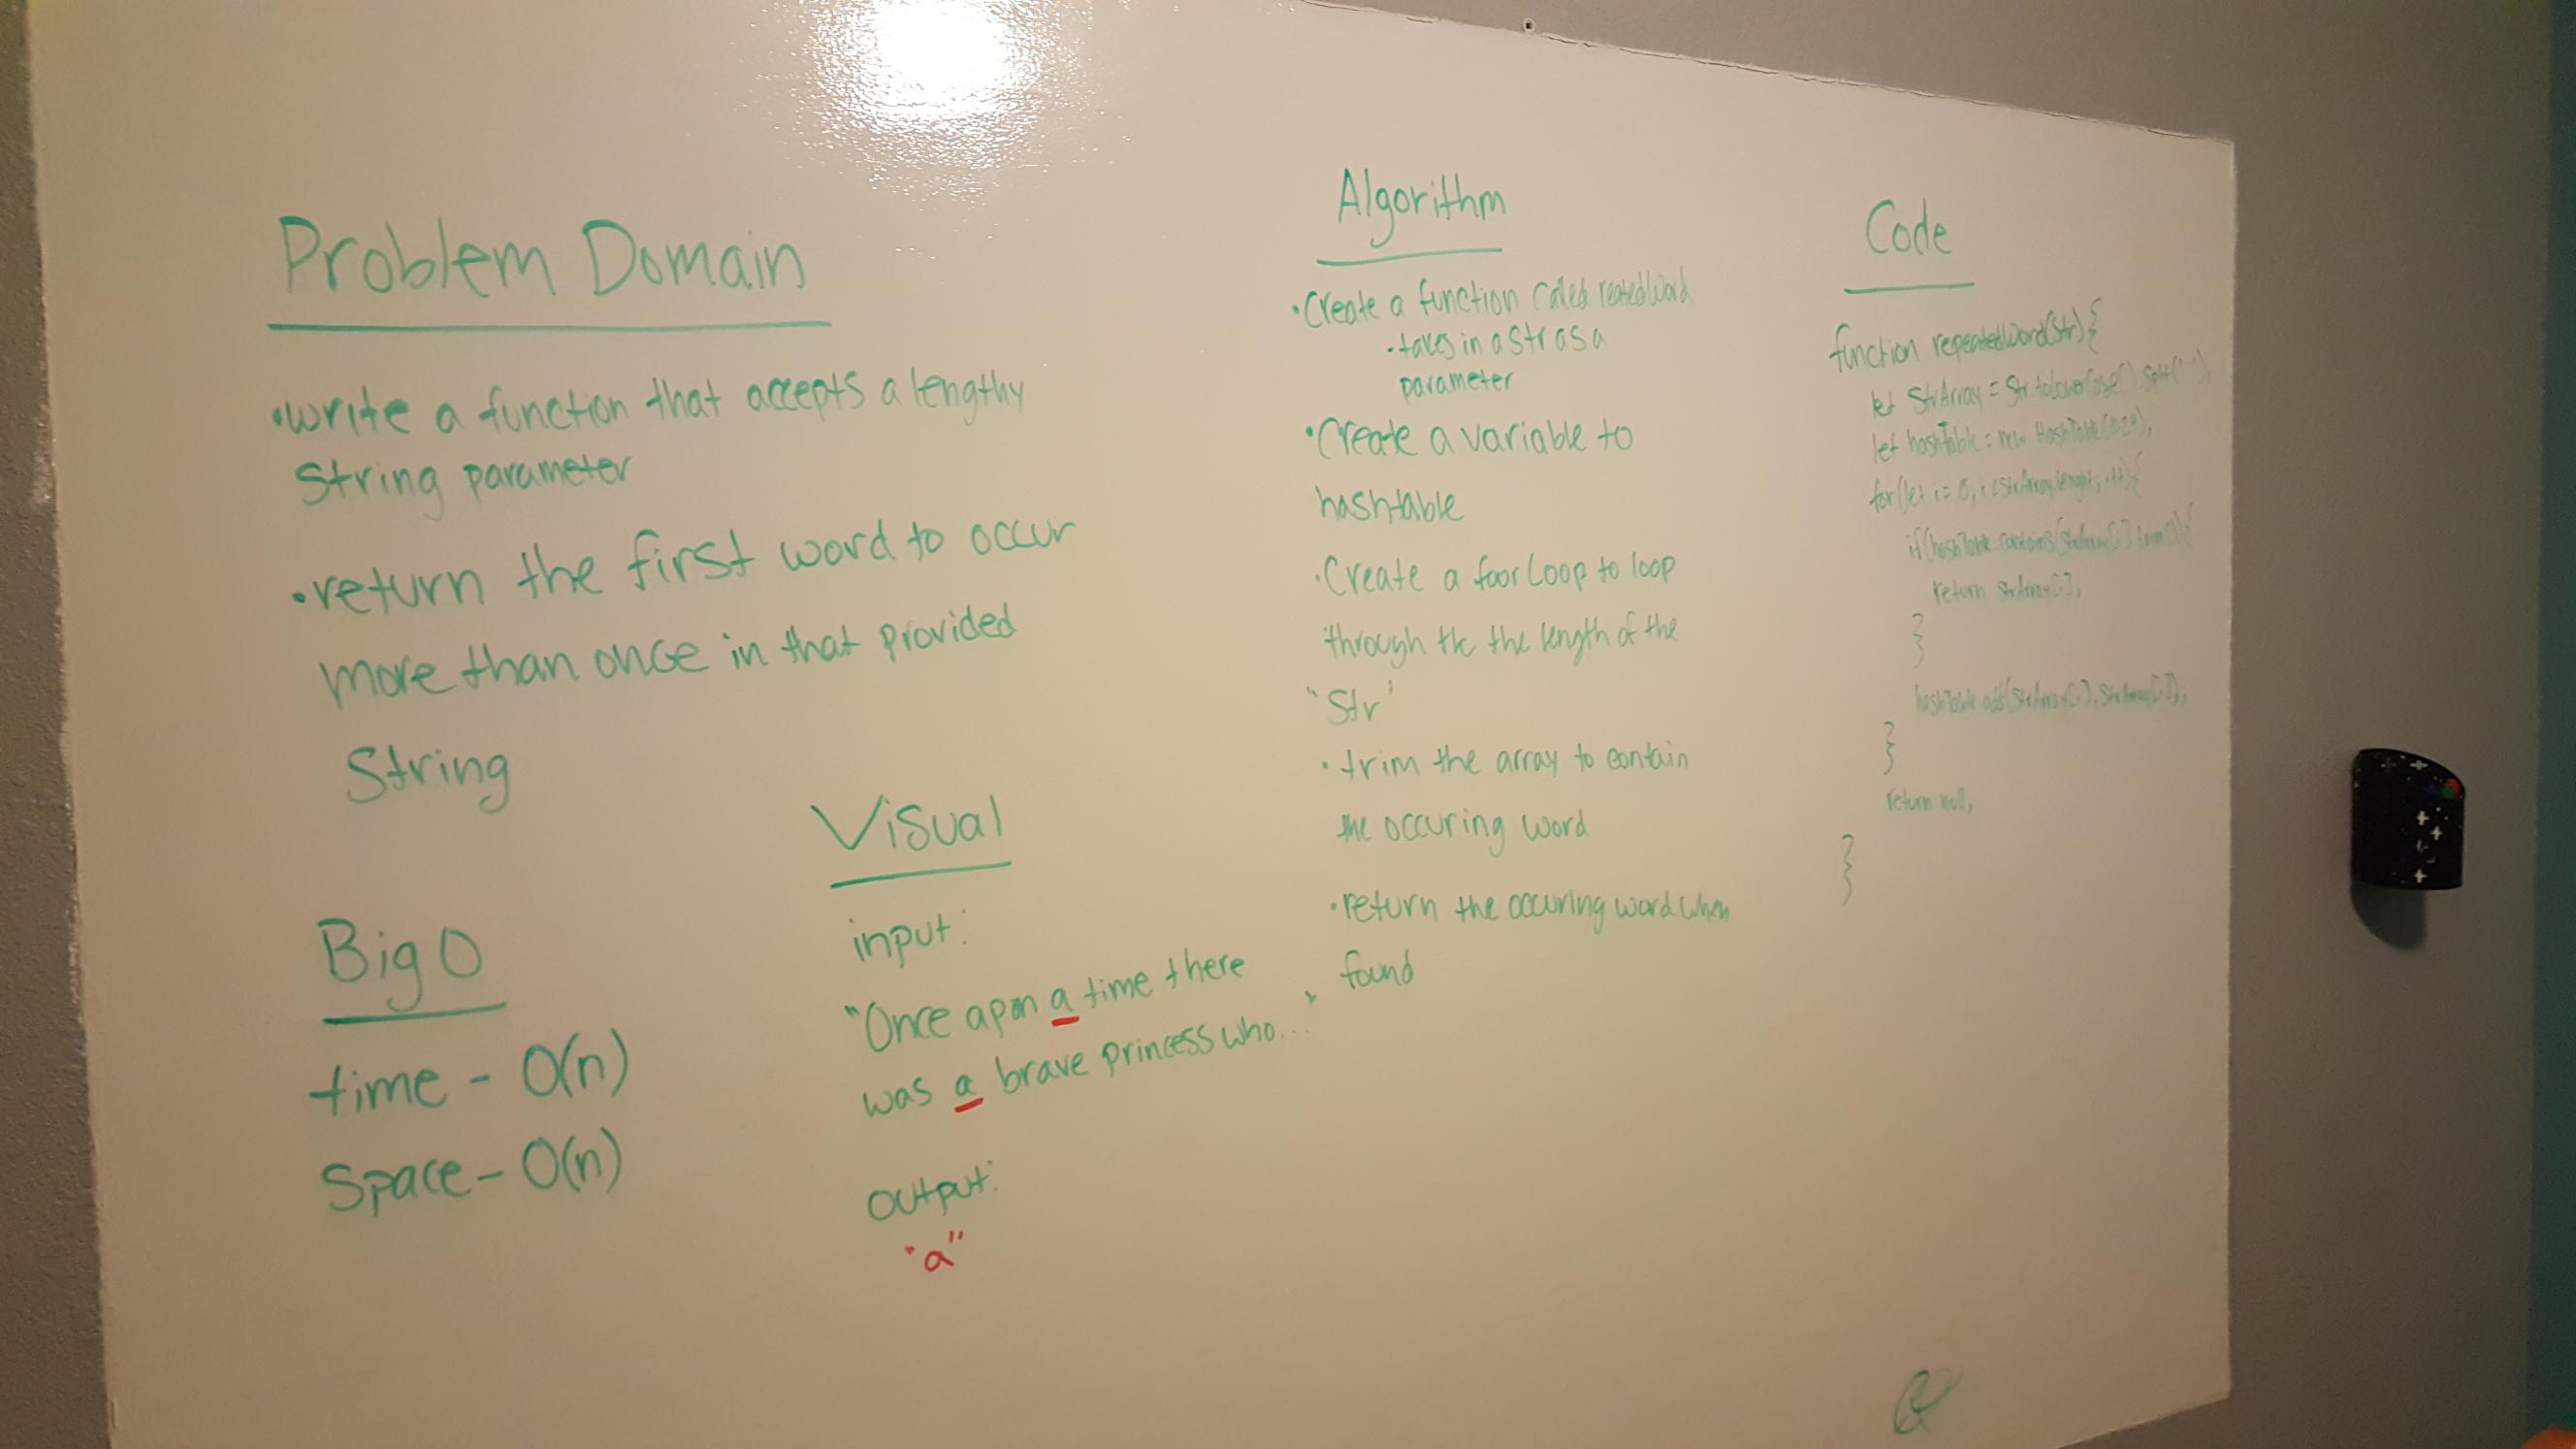 Problem Domain
•write a function that accepts a lengthy
String parameter
•return the first word to occur
more than once in that provided
String
Big O
time - O(n)
Space - O(n)
Visual
input:
"Once apon a time there
was a brave princess who..."
output:
"a"
Algorithm
•Create a function called reatedWord
-takes in a Str as a
parameter
•Create a variable to
hashtable
•Create a foor Loop to loop
through the the length of the
"Str"
•trim the array to contain
the occuring word
•return the occuring word when
found
Code
function repeatedWord(Str){
let StrArray = Str.toLowerCase().Split(' ');
let hashTable = new HashTable(1024);
for(let i = 0, i < StrArray.lenght, i++){
if(hashTable.contains(StrArray[i].trim()){
return StrArray[i];
}
hashTable.add(StrArray[i], StrArray[i]);
}
return null;
}